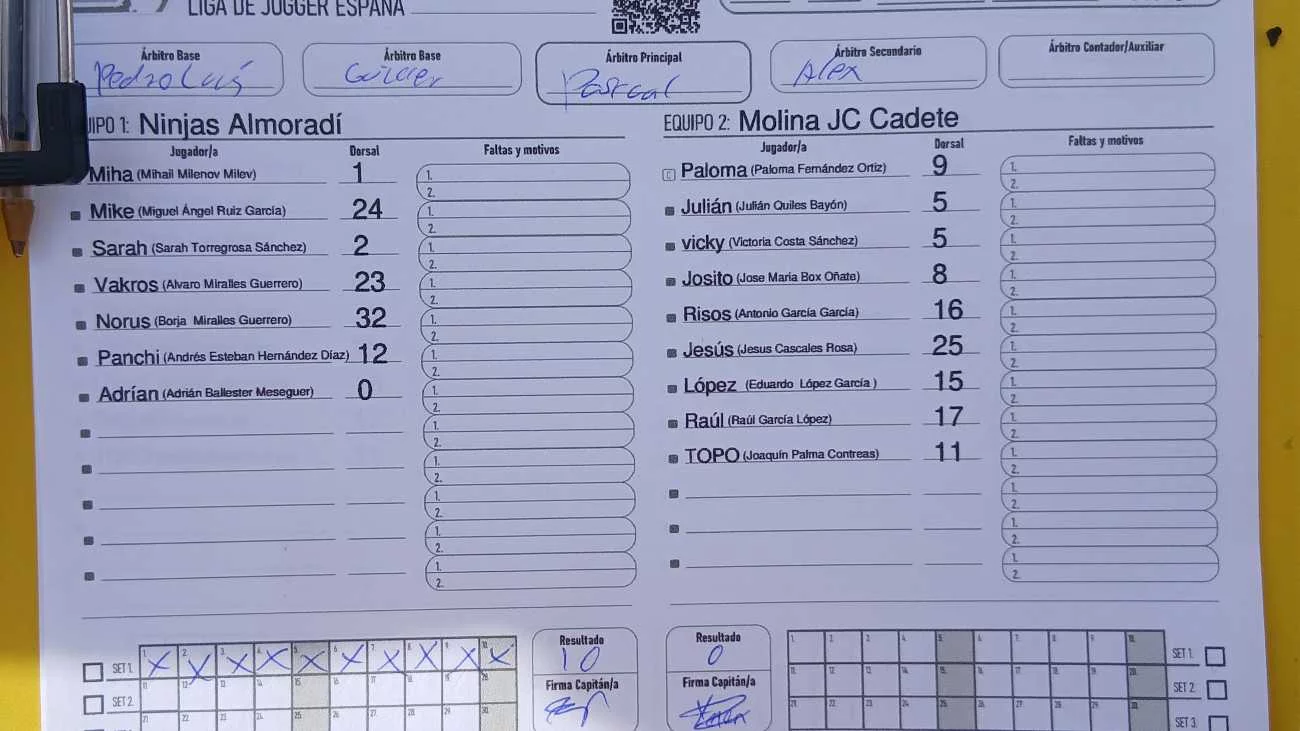 LIGA DE JUGGER ESPAÑA
Árbitro Base
Pedro Luis
Árbitro Base
Árbitro Principal
Pascal
Árbitro Secundario
Alex
Árbitro Contador/Auxiliar
UIPO 1: Ninjas Almoradí
Jugador/a Dorsal Faltas y motivos
Miha (Mihail Milenov Milev) 1 1. 2.
Mike (Miguel Ángel Ruiz García) 24 1. 2.
Sarah (Sarah Torregrosa Sánchez) 2 1. 2.
Vakros (Alvaro Miralles Guerrero) 23 1. 2.
Norus (Borja Miralles Guerrero) 32 1. 2.
Panchi (Andrés Esteban Hernández Díaz) 12 1. 2.
Adrían (Adrián Ballester Meseguer) 0 1. 2.
1. 2.
1. 2.
1. 2.
1. 2.
1. 2.
EQUIPO 2: Molina JC Cadete
Jugador/a Dorsal Faltas y motivos
C Paloma (Paloma Fernández Ortiz) 9 1. 2.
Julián (Julián Quiles Bayón) 5 1. 2.
vicky (Victoria Costa Sánchez) 5 1. 2.
Josito (Jose Maria Box Oñate) 8 1. 2.
Risos (Antonio García García) 16 1. 2.
Jesús (Jesus Cascales Rosa) 25 1. 2.
López (Eduardo López García ) 15 1. 2.
Raúl (Raúl García López) 17 1. 2.
TOPO (Joaquín Palma Contreas) 11 1. 2.
1. 2.
1. 2.
1. 2.
SET 1. 1. 2. 3. 4. 5. 6. 7. 8. 9. 10.
X X X X X X X X X X
SET 2. 11. 12. 13. 14. 15. 16. 17. 18. 19. 20.
21. 22. 23. 24. 25. 26. 27. 28. 29. 30.
Resultado
10
Firma Capitán/a
Resultado
0
Firma Capitán/a
1. 2. 3. 4. 5. 6. 7. 8. 9. 10. SET 1.
11. 12. 13. 14. 15. 16. 17. 18. 19. 20. SET 2.
21. 22. 23. 24. 25. 26. 27. 28. 29. 30. SET 3.